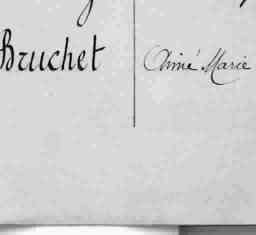 Bruchet Aimé Marie